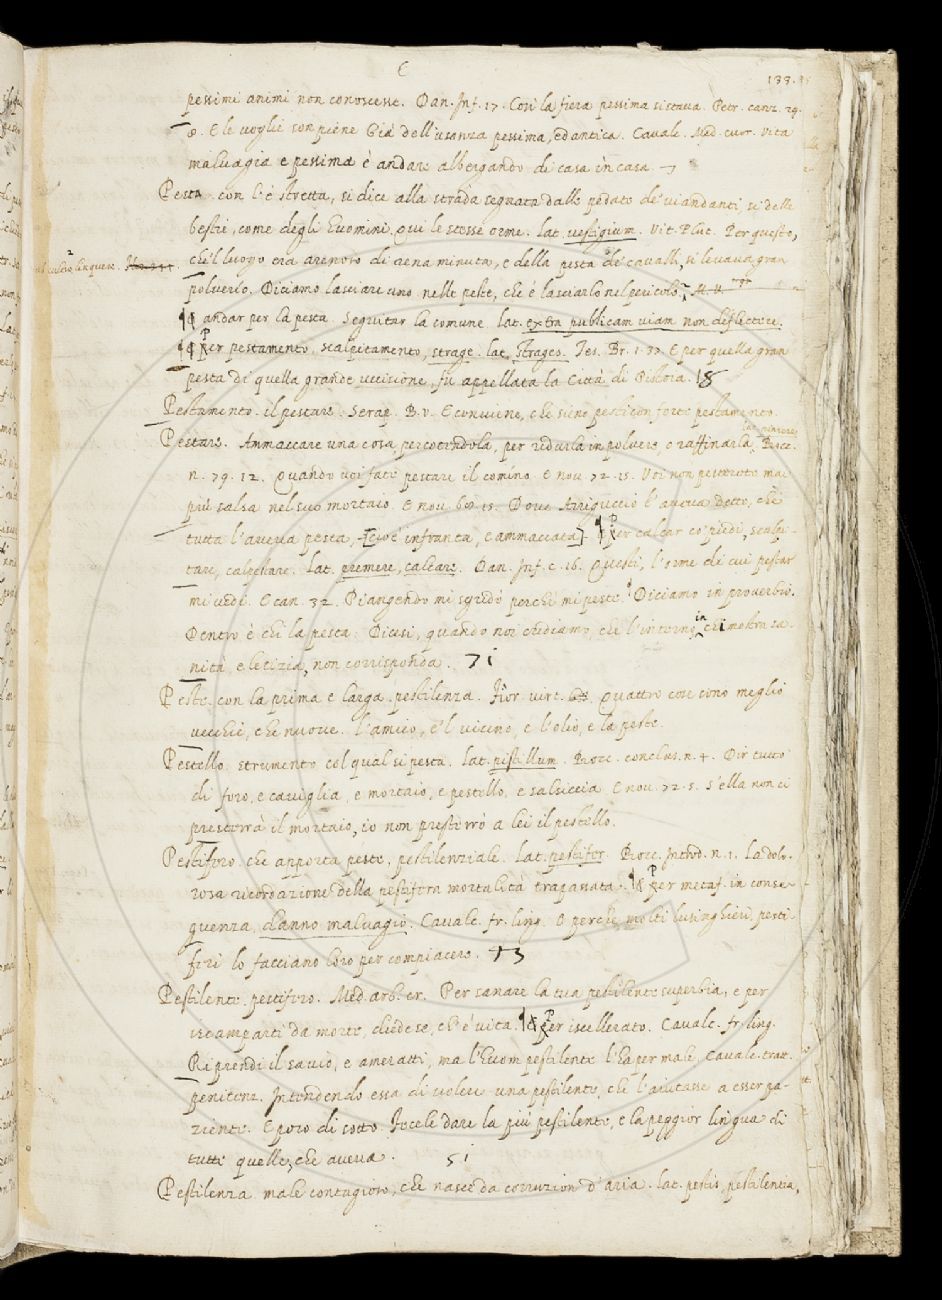 E
133.
pessimi animi non conoscesse. Dan. Inf. 17. Così la fiera pessima si stava. Petr. canz. 29.
8. E le voglie son piene Già dell'usanza pessima, ed antica. Cavalc. Med. cuor. Vita
malvagia e pessima è andare albergando di casa in casa
Pesta con l'é stretta, si dice alla strada segnata dalle pedate de' viandanti si delle
bestie, come degli huomini, qui le stesse orme. lat. vestigium. Vit. Plut. Per questo,
che 'l luogo era arenoso di rena minuta, e della pesta di cavalli, si levava gran
polverio. Diciamo lasciare uno nelle peste, che è lasciarlo nel pericolo, M. V.
¶ andar per la pesta Seguitar la comune. lat. extra publicam viam non deflectere.
¶ Per pestamento, scalpitamento, strage. lat. strages. Tes. Br. 1. 37. E per quella gran
pesta di quella grande uccisione, fu appellata la Città di Pistoia. 18
Pestamento. il pestare. Serap. B. v. E conviene, che sieno pesti con forte pestamento.
Pestare. Ammaccare una cosa percotendola, per ridurla in polvere, o raffinarla. Bocc.
n. 79. 12. Quando voi fate pestare il comino. E nov. 72. 15. Voi non pesterete mai
più salsa nel suo mortaio. E nov. 68. 15. Dove Arriguccio l'aveva detto, che
tutta l'aveva pesta, [cioè infranta, e ammaccata] ¶ Per calcar co' piedi, scalpi-
tare, calpestare. Lat. premere, calcare. Dan. Inf. c. 16. Questi, l'orme di cui pestar
mi vedi. E can. 32. Piangendo mi sgridò perchè mi peste. Diciamo in proverbio.
Dentro è chi la pesta: Dicesi, quando noi crediamo, che l'interno, in chi mostra sa-
nità e letizia, non corrisponda. 71
Peste. con la prima e larga. pestilenza. Fior. virt. Quattro cose sono meglio
vecchie, che nuove. l'amico, e 'l vicino, e l'olio, e la peste.
Pestello. strumento col qual si pesta. Lat. pistillum. Bocc. conclus. n. 4. Dir tutto
di foro, e caviglia, e mortaio, e pestello, e salsiccia E nov. 72. 5. S'ella non ci
presterrà il mortaio, io non presterrò a lei il pestello.
Pestifero. che apporta peste, pestilenziale. Lat. pestifer. Bocc. Introd. n. 1. La dolo-
rosa ricordazione della pestifera mortalità trapassata. ¶ Per metaf. in conse-
quenza, danno malvagio. Cavalc. fr. ling. O perchè molti lusinghieri, pesti-
feri lo facciano loro per compiacere. 73
Pestilente. pestifero. Med. arb. cr. Per sanare la tua pestilente superbia, e per
ricamparti da morte, diede se, ch'è vita. ¶ Per iscellerato. Cavalc. fr. ling.
Riprendi il savio, e ameratti, ma l'huom pestilente l'ha per male, Cavalc. tratt.
peniten. Intendendo essa di volere una pestilente, che l'aiutasse a esser pa-
ziente. E poco di sotto. Fecele dare la più pestilente, e la peggior lingua di
tutte quelle, che aveva. 51
Pestilenza. male contagioso, che nasce da corruzion d'aria. lat. pestis, pestilentia,